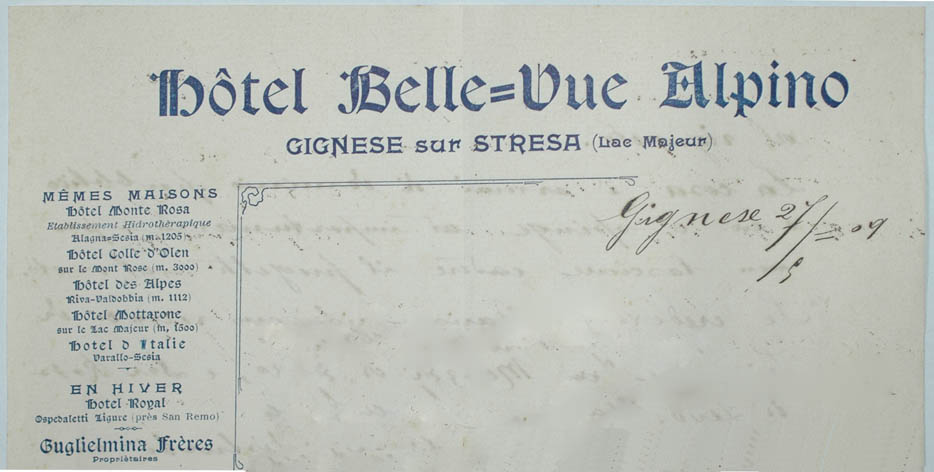 Hôtel Belle=Vue Alpino
GIGNESE sur STRESA (Lac Majeur)
Gignese 27/5 09
MÊMES MAISONS
Hôtel Monte Rosa
Etablissement Hidrothérapique
Alagna=Sesia (m. 1205)
Hôtel Colle d'Olen
sur le Mont Rose (m. 3000)
Hôtel des Alpes
Riva-Valdobbia (m. 1112)
Hôtel Mottarone
sur le Lac Majeur (m, 1500)
Hotel d Italie
Varallo-Sesia
EN HIVER
Hotel Royal
Ospedaletti Ligure (près San Remo)
Guglielmina Frères
Propriétaires